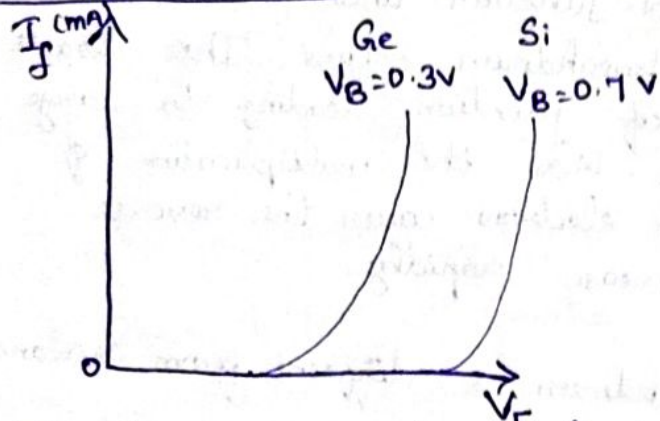 I_f (mA)
Ge
V_B=0.3V
Si
V_B=0.7V
0
V_F